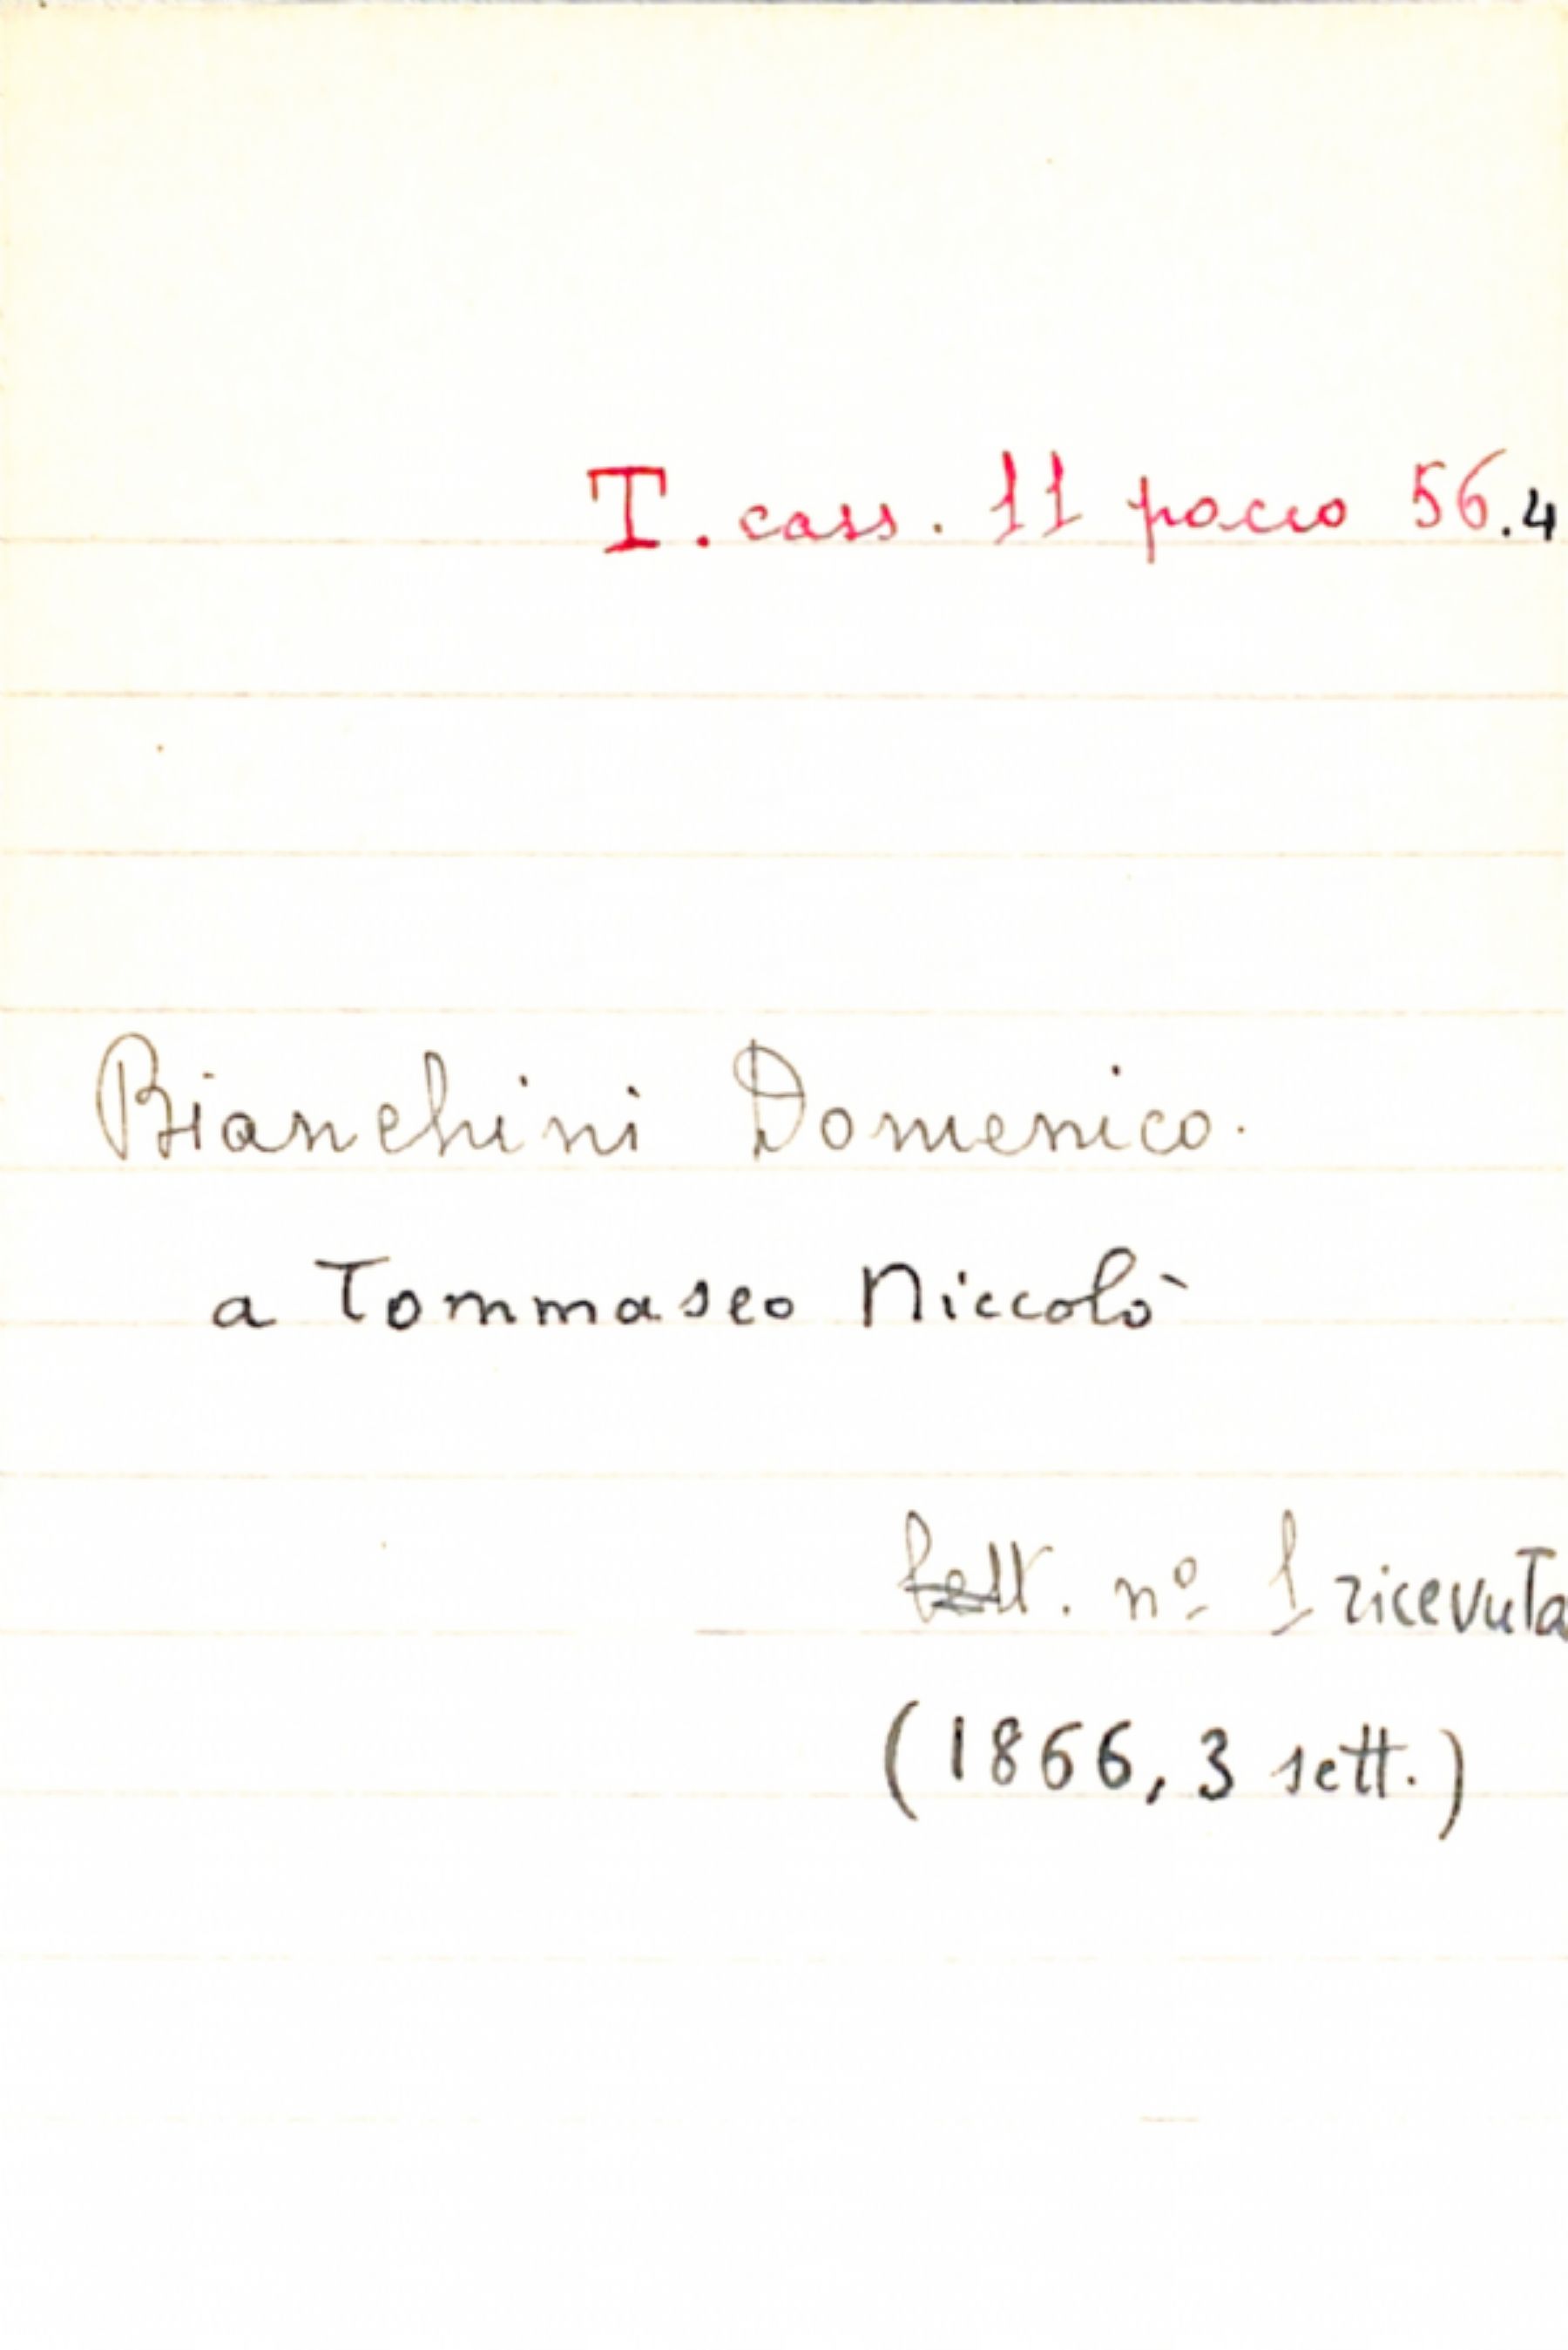 T. cass. 11 pacco 56.4
Bianchini Domenico.
a Tommaseo Niccolò
Lett. nº 1 ricevuta
(1866, 3 sett.)